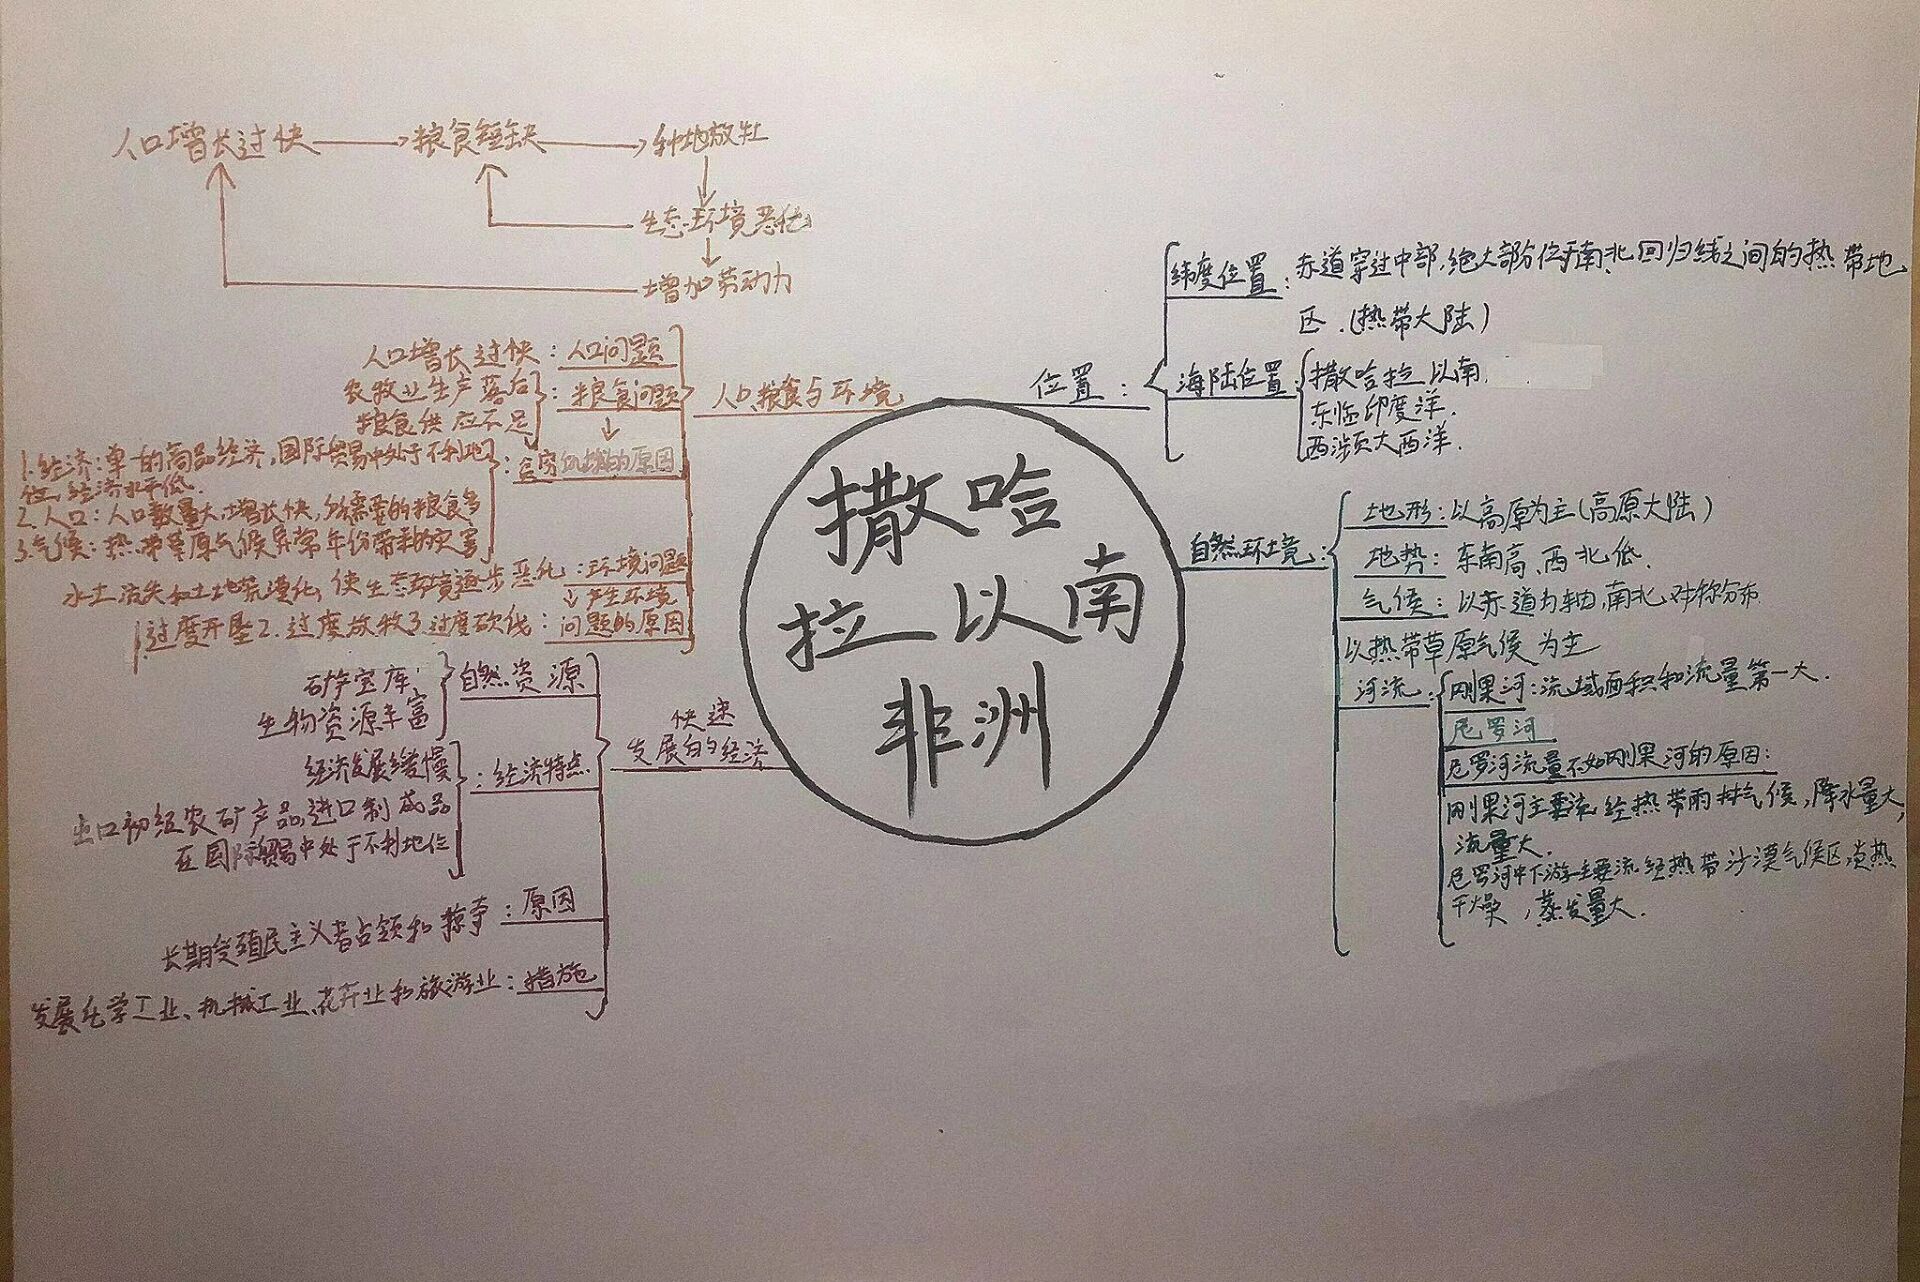 人口增长过快
粮食短缺
种地放牡
生态环境恶化
增加劳动力
人口增长过快：人口问题
农牧业生产落后
粮食供应不足
：粮食问题
人口、粮食与环境
1.经济：单一的商品经济，国际贸易中处于不利地
位，经济水平低.
2.人口：人口数量大，增长快，所需要的粮食多
3.气候：热带草原气候异常年份带来的灾害
：贫穷饥饿的原因
水土流失和土地荒漠化，使生态环境逐步恶化：环境问题
产生环境
问题的原因
1.过度开垦2.过度放牧3.过度砍伐：
矿产宝库
生物资源丰富
自然资源
快速
发展的经济
经济发展缓慢
出口初级农矿产品，进口制成品
在国际贸易中处于不利地位
：经济特点
长期受殖民主义者占领和掠夺：原因
发展化学工业、机械工业、花卉业和旅游业：措施
撒哈
拉以南
非洲
位置：
纬度位置：赤道穿过中部，绝大部分位于南北回归线之间的热带地
区.(热带大陆)
海陆位置：
撒哈拉以南.
东临印度洋.
西濒大西洋.
自然环境：
地形：以高原为主(高原大陆)
地势：东南高，西北低.
气候：以赤道为轴，南北对称分布
以热带草原气候为主
河流：
刚果河：流域面积和流量第一大.
尼罗河
尼罗河流量不如刚果河的原因：
刚果河主要流经热带雨林气候，降水量大，
流量大.
尼罗河中下游主要流经热带沙漠气候区，炎热
干燥，蒸发量大.